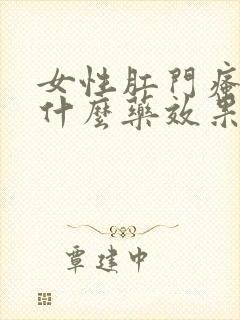 女性肛門瘙
什麼藥效果
覃建中